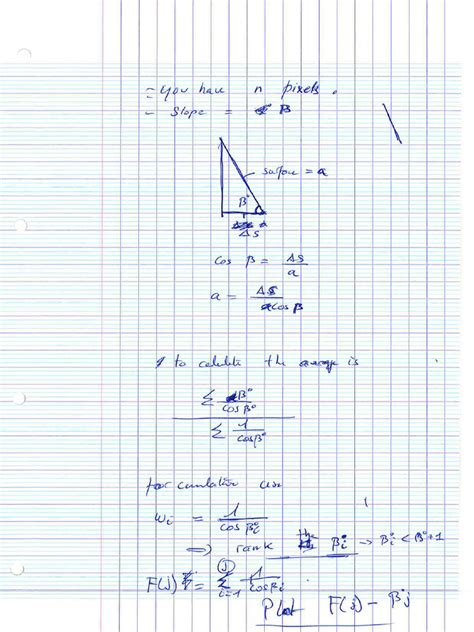 = you have n pixels.
- Slope = β
surface = a
β°
Δs
cos β = Δs / a
a = Δs / cos β
to calculate the average is
Σ β° / cos β°
Σ 1 / cos β°
for cumulative use
wi = 1 / cos βi
⟹ rank the βi → βi < β+1
F(J) = Σ i=1 (J) 1 / cos βi
Plot F(j) - βj